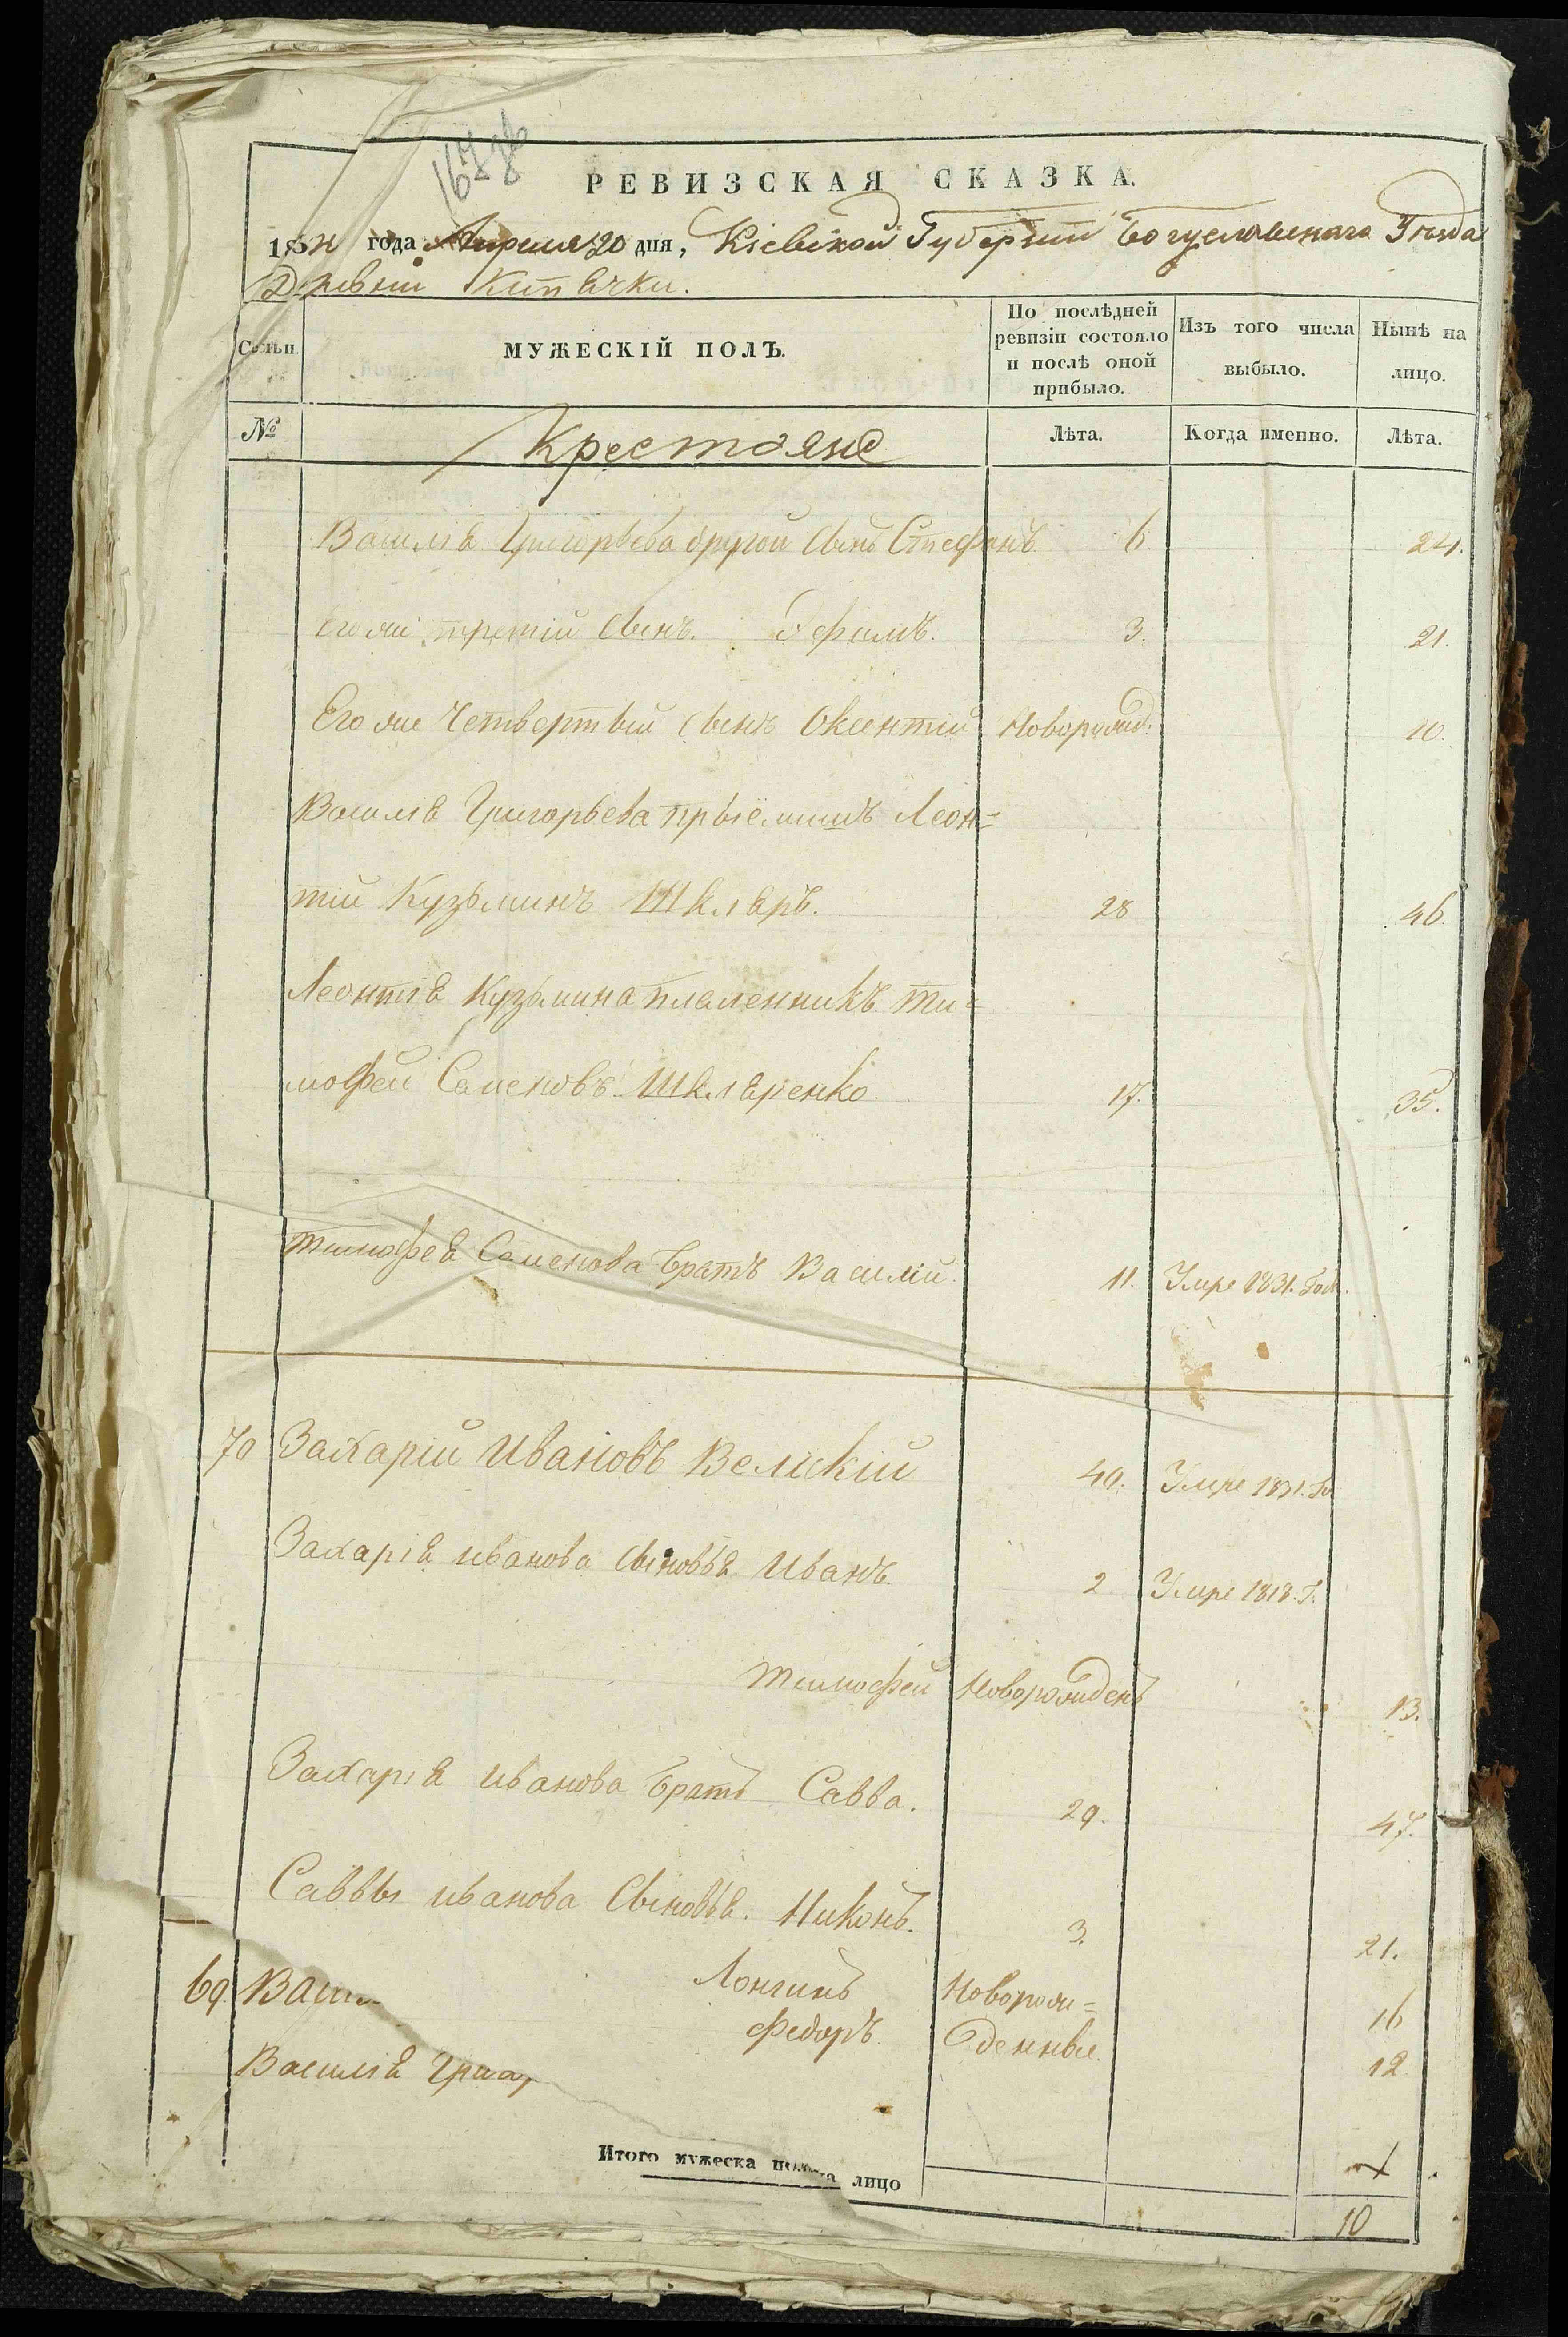 РЕВИЗСКАЯ СКАЗКА.
183 года Апреля 20 дня, Кіевской Губерніи Богуславскаго Уѣзда
Деревни Кипячки.
Семьи
МУЖЕСКІЙ ПОЛЪ.
По послѣдней ревизіи состояло и послѣ оной прибыло.
Изъ того числа выбыло.
Нынѣ на лицо.
№
Крестьяне
Лѣта.
Когда именно.
Лѣта.
Василія Григорьева другой сынъ Стефанъ. 6 24.
Его же третій сынъ. Ефимъ. 3. 21.
Его же Четвертый сынъ Оксентій Новорожд: 10.
Василія Григорьева прыемышъ Леон=
тій Кузьминъ Шкляръ. 28 46.
Леонтія Кузьмина племенникъ Ти=
мофей Семеновъ Шкляренко 17. 35.
Тимофея Семенова братъ Василій. 11. Умре 1831. Год.
70 Захарій Ивановъ Великій 40. Умре 1831. Го
Захарія Иванова сыновья Иванъ. 2 Умре 1818. Г.
Тимофей Новорожденъ 13.
Захарія Иванова братъ Савва. 29. 47.
Саввы Иванова сыновья. Никонъ. 3. 21.
69. Васи
Лонгинъ Новорож= 16
Федоръ. денные. 12
Василія Григ
Итого мужеска пола на лицо
10